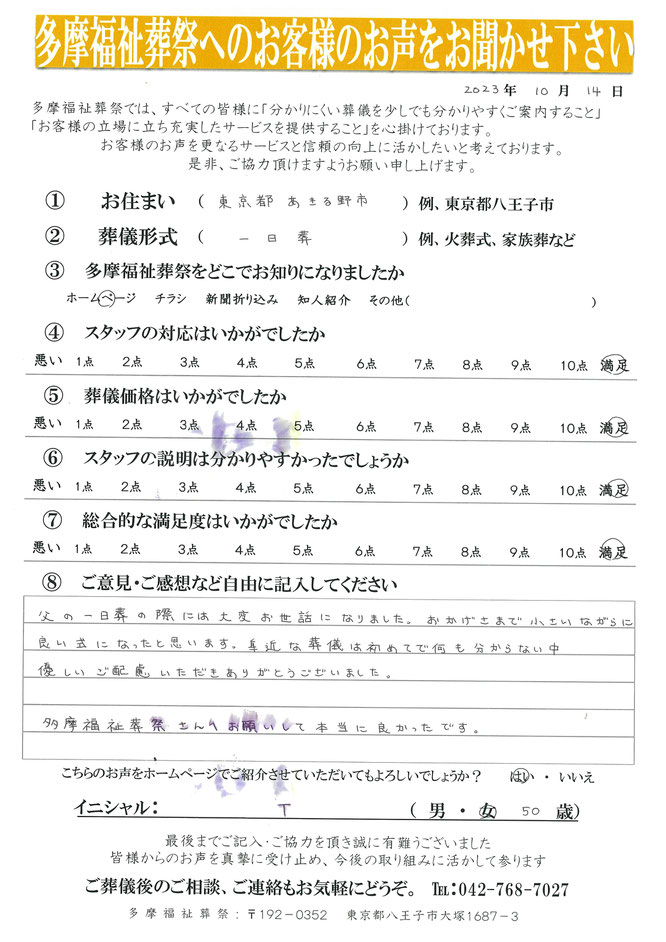 多摩福祉葬祭へのお客様のお声をお聞かせ下さい
2023年 10月 14日
多摩福祉葬祭では、すべての皆様に「分かりにくい葬儀を少しでも分かりやすくご案内すること」
「お客様の立場に立ち充実したサービスを提供すること」を心掛けております。
お客様のお声を更なるサービスと信頼の向上に活かしたいと考ております。
是非、ご協力頂けますようお願い申し上げます。
① お住まい （東京都 あきる野市）例、東京都八王子市
② 葬儀形式 （一日葬）例、火葬式、家族葬など
③ 多摩福祉葬祭をどこでお知りになりましたか
ホームページ チラシ 新聞折り込み 知人紹介 その他( )
④ スタッフの対応はいかがでしたか
悪い 1点 2点 3点 4点 5点 6点 7点 8点 9点 10点 満足
⑤ 葬儀価格はいかがでしたか
悪い 1点 2点 3点 4点 5点 6点 7点 8点 9点 10点 満足
⑥ スタッフの説明は分かりやすかったでしょうか
悪い 1点 2点 3点 4点 5点 6点 7点 8点 9点 10点 満足
⑦ 総合的な満足度はいかがでしたか
悪い 1点 2点 3点 4点 5点 6点 7点 8点 9点 10点 満足
⑧ ご意見・ご感想など自由に記入してください
父の一日葬の際には大変お世話になりました。おかげさまで小さいながらに
良い式になったと思います。身近な葬儀は初めてで何も分からない中
優しいご配慮いただきありがとうございました。
多摩福祉葬祭さんへお願いして本当に良かったです。
こちらのお声をホームページでご紹介させていただいてもよろしいでしょうか？ はい・いいえ
イニシャル： T （男・女 50歳）
最後までご記入・ご協力を頂き誠に有難うございました
皆様からのお声を真摯に受け止め、今後の取り組みに活かして参ります
ご葬儀後のご相談、ご連絡もお気軽にどうぞ。 TEL:042-768-7027
多摩福祉葬祭：〒192-0352 東京都八王子市大塚1687-3